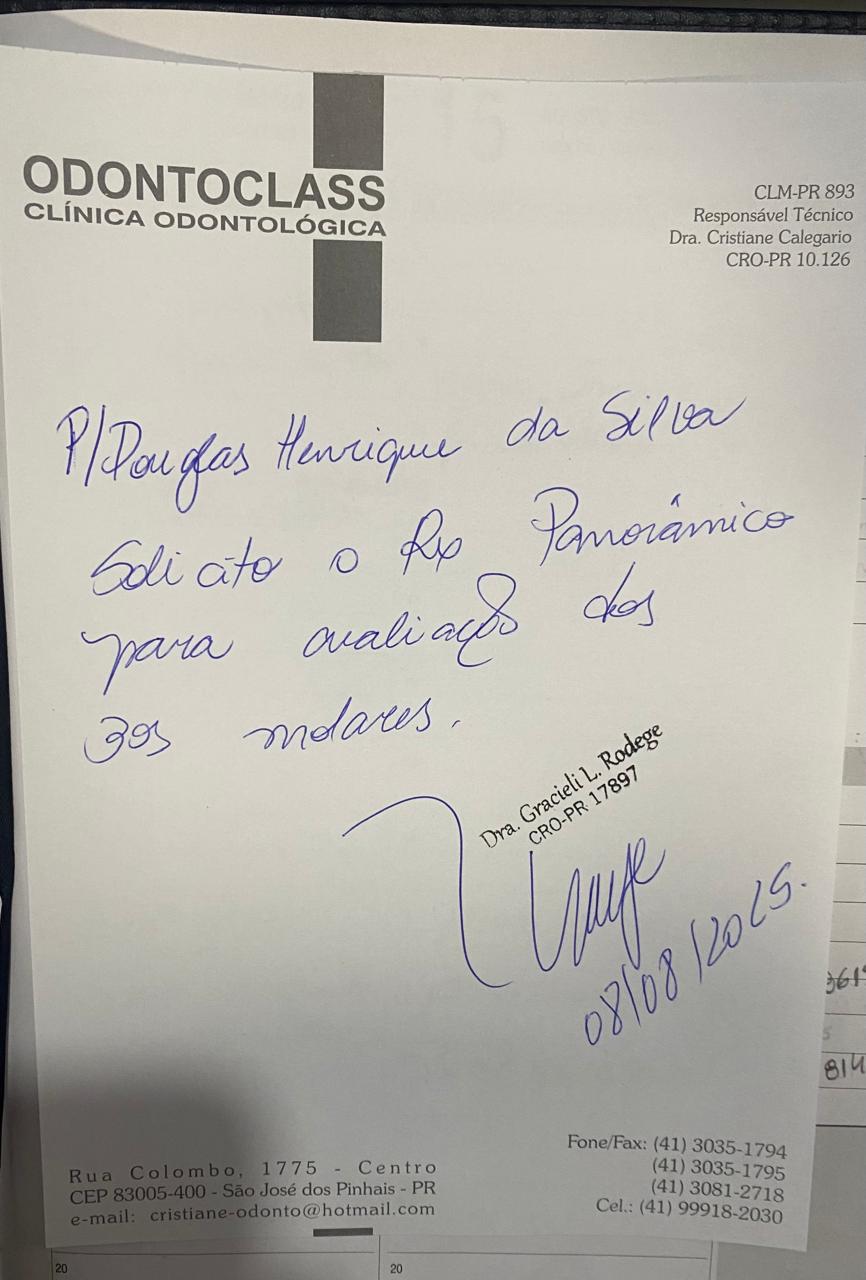 ODONTOCLASS
CLÍNICA ODONTOLÓGICA
CLM-PR 893
Responsável Técnico
Dra. Cristiane Calegario
CRO-PR 10.126
P/Douglas Henrique da Silva
Solicito o Rx Panorâmico
para avaliação dos
3os molares.
Dra. Gracieli L. Rodege
CRO-PR 17897
08/08/2025.
Rua Colombo, 1775 - Centro
CEP 83005-400 - São José dos Pinhais - PR
e-mail: cristiane-odonto@hotmail.com
Fone/Fax: (41) 3035-1794
(41) 3035-1795
(41) 3081-2718
Cel.: (41) 99918-2030
814
20
20